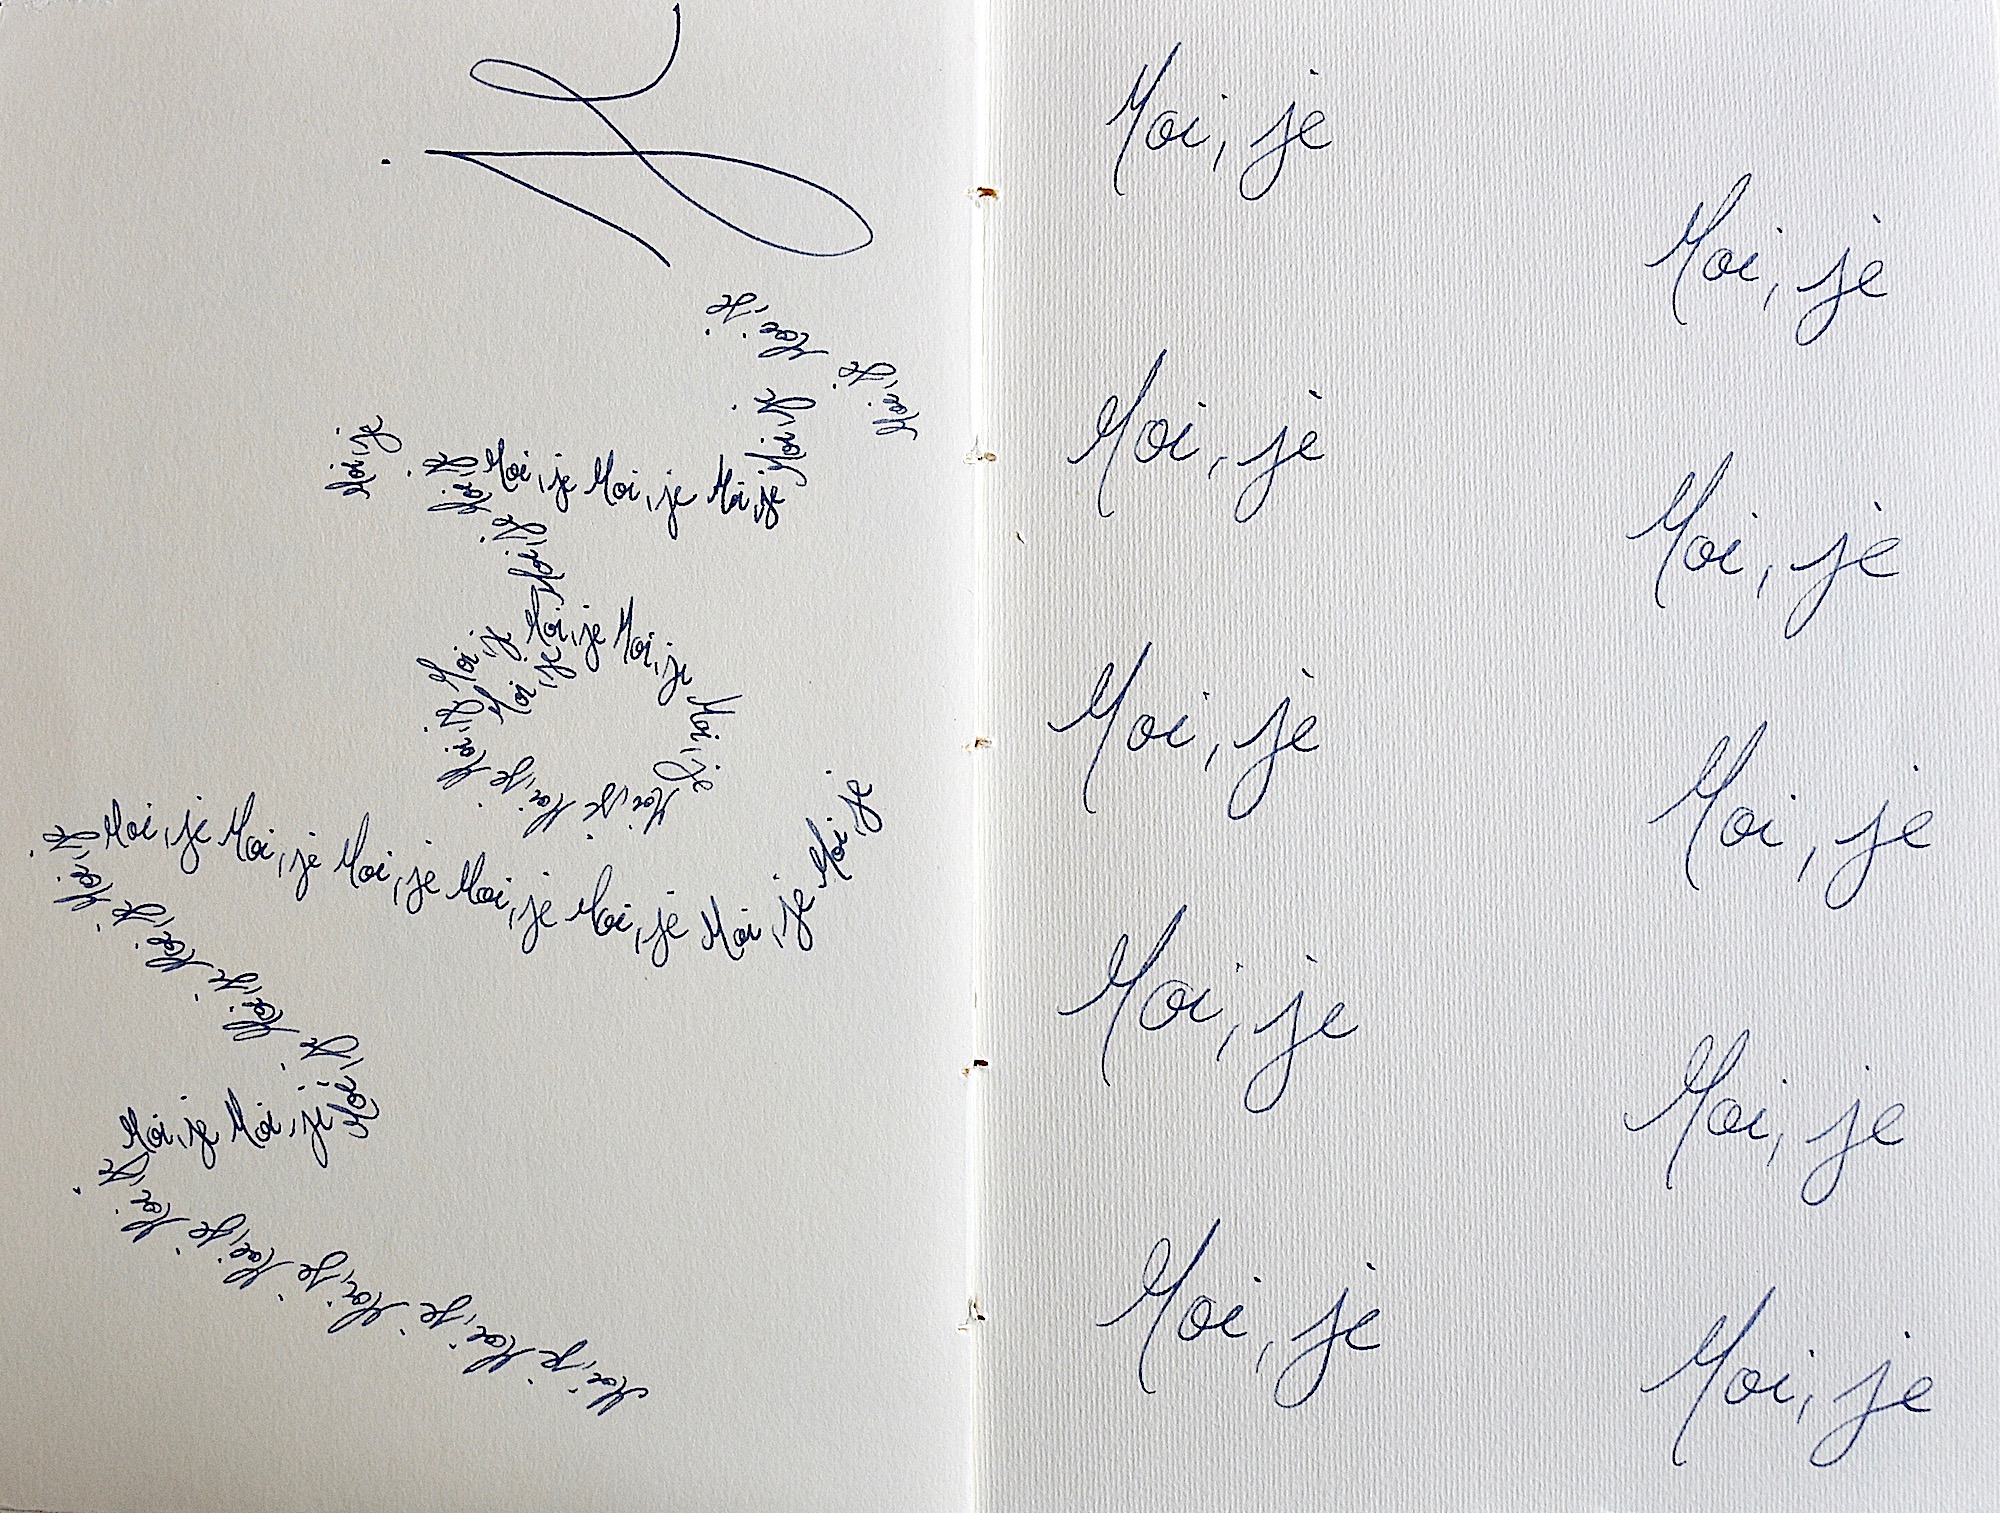 je
Moi, je
Moi, je
Moi, je
Moi, je
Moi, je Moi, je Moi, je
Moi, je
Moi, je
Moi, je Moi, je Moi, je Moi, je Moi, je Moi, je Moi, je Moi, je
Moi, je Moi, je Moi, je Moi, je Moi, je Moi, je Moi, je
Moi, je Moi, je Moi, je Moi, je
Moi, je Moi, je
Moi, je Moi, je Moi, je Moi, je Moi, je
Moi, je
Moi, je
Moi, je
Moi, je
Moi, je
Moi, je
Moi, je
Moi, je
Moi, je
Moi, je